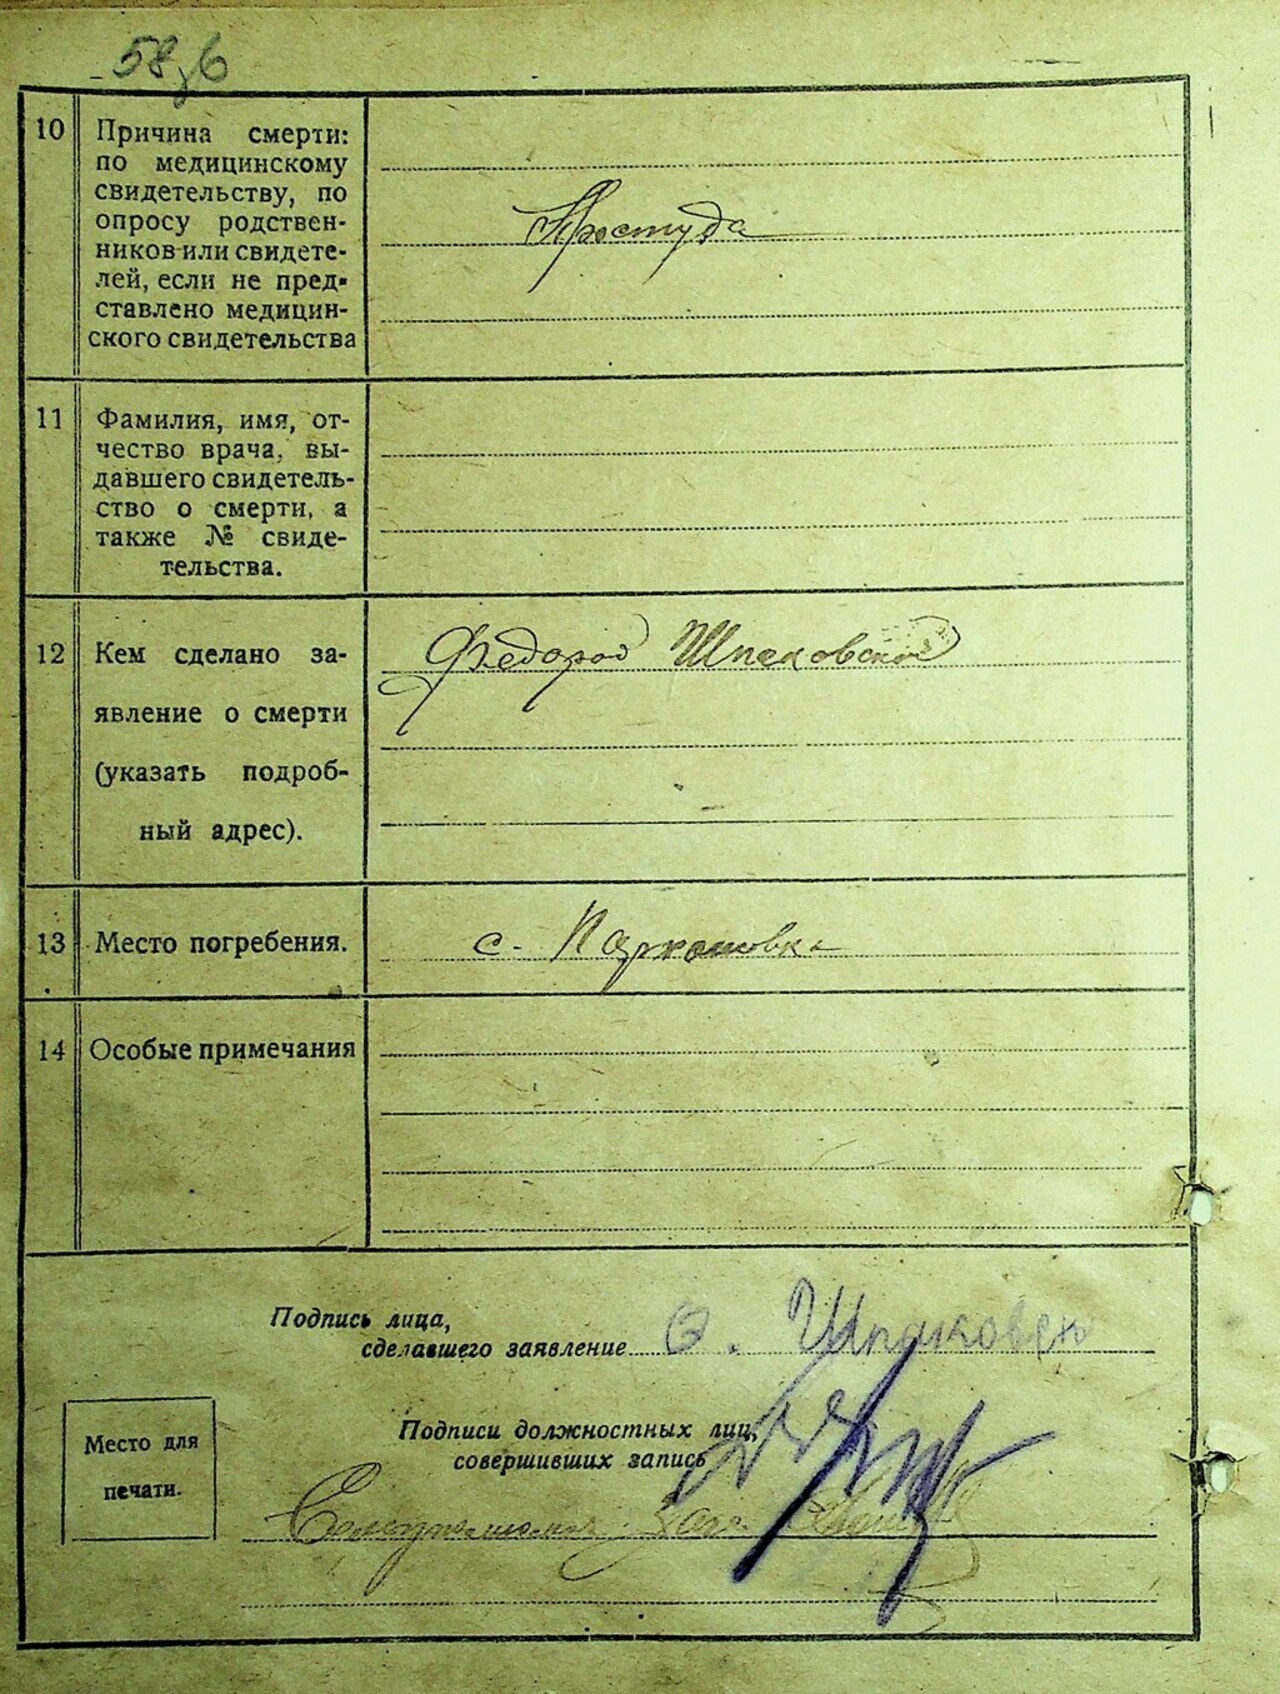 58
10 Причина смерти:
по медицинскому
свидетельству, по
опросу родствен-
ников или свидете-
лей, если не пред-
ставлено медицин-
ского свидетельства
Простуда
11 Фамилия, имя, от-
чество врача, вы-
давшего свидетель-
ство о смерти, а
также № свиде-
тельства.
12 Кем сделано за-
явление о смерти
(указать подроб-
ный адрес).
Федорос Шпаковской
13 Место погребения.
с. Пархомовка
14 Особые примечания
Подпись лица,
сделавшего заявление
Шпаковск
Подписи должностных лиц,
совершивших запись
Место для
печати.